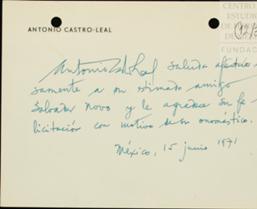 ANTONIO CASTRO-LEAL
CENTRO
ESTUDI
DE
FUNDAC
Antonio C Leal saluda afectuo-
samente a su estimado amigo
Salvador Novo y le agradece su fe-
licitación con motivo de su onomástico.
México, 15 junio 1971